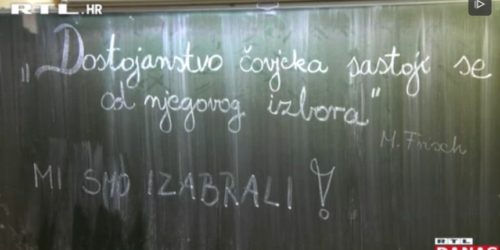 RTL.HR
„Dostojanstvo čovjeka sastoji se
od njegovog izbora"
M. Frisch
MI SMO IZABRALI!
RTL
DANAS